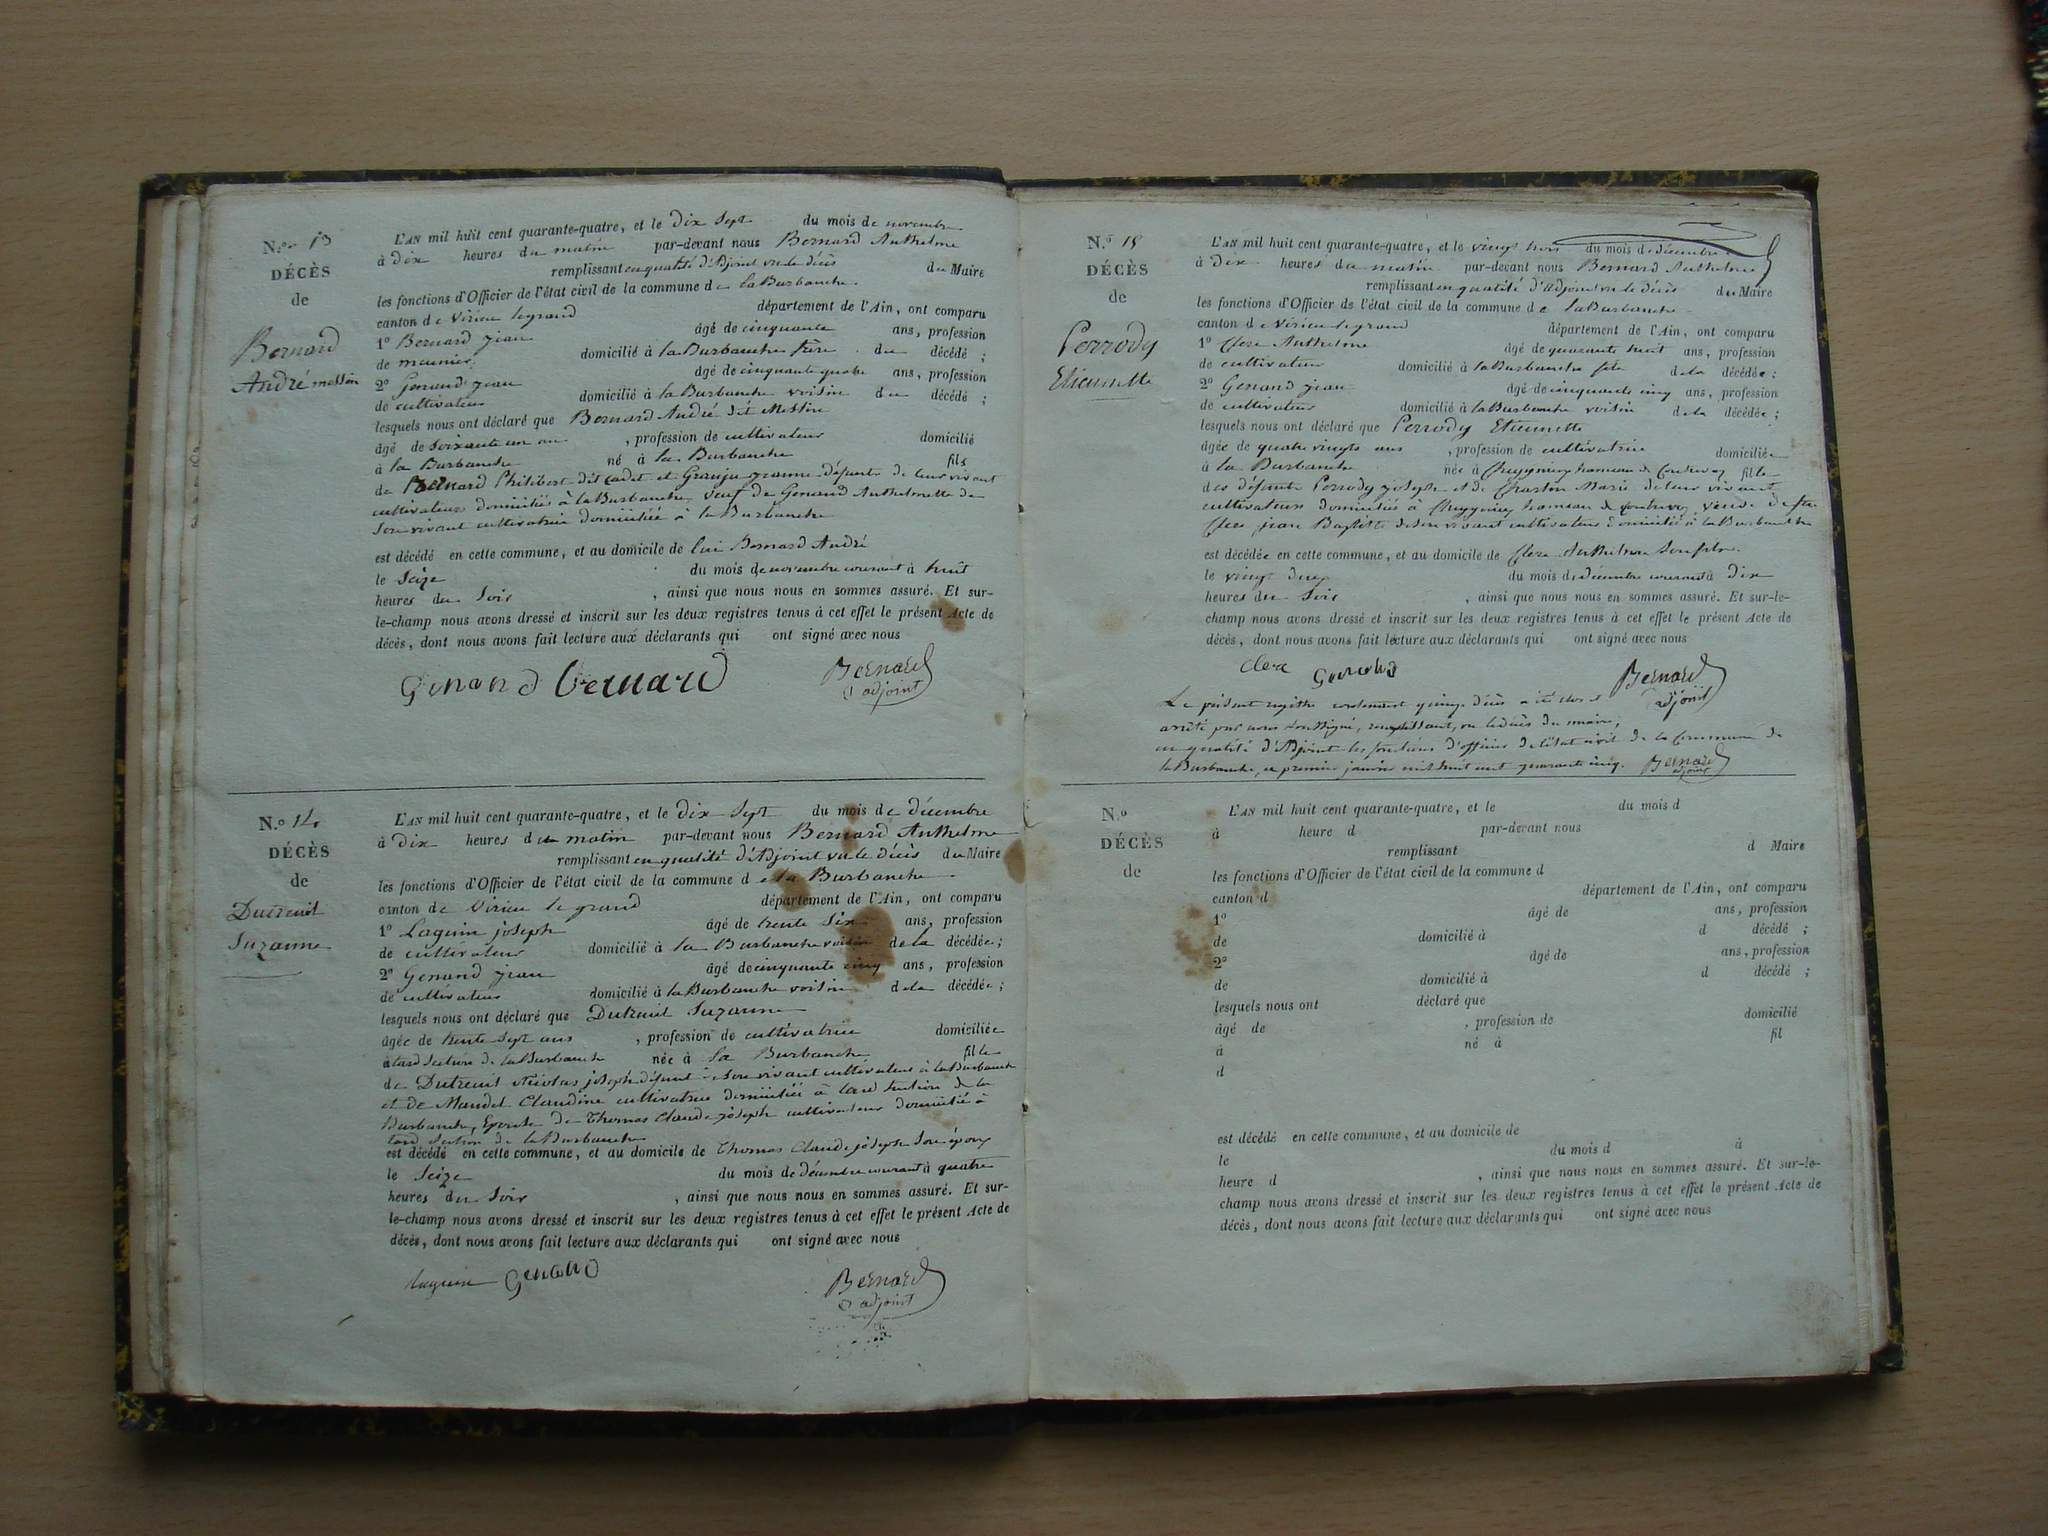 N.º 13
DÉCÈS
de
Bernard
André messin
L'AN mil huit cent quarante-quatre, et le dix sept du mois de novembre
à dix heures du matin par-devant nous Bernard Anthelme
remplissant en qualité d'Adjoint vu le décès du Maire
les fonctions d'Officier de l'état civil de la commune de la Burbanche
canton de Virieu legrand département de l'Ain, ont comparu
1º Bernard jean âgé de cinquante ans, profession
de meunier domicilié à la Burbanche frère du décédé ;
2º Genand jean âgé de cinquante quatre ans, profession
de cultivateur domicilié à la Burbanche voisin du décédé ;
lesquels nous ont déclaré que Bernard André dit Messin
âgé de Soixante un an , profession de cultivateur domicilié
à la Burbanche né à la Burbanche fils
de Bernard Philibert dit cadet et jeanne défunts de leur vivant
cultivateurs domiciliés à la Burbanche, veuf de Genand Anthelmette de
Son vivant cultivatrice domiciliée à la Burbanche
est décédé en cette commune, et au domicile de lui Bernard André
le Seize du mois de novembre courant à huit
heures du Soir , ainsi que nous nous en sommes assuré. Et sur-
le-champ nous avons dressé et inscrit sur les deux registres tenus à cet effet le présent Acte de
décès, dont nous avons fait lecture aux déclarants qui ont signé avec nous
Genand Bernard Bernard
adjoint
N.º 14
DÉCÈS
de
Dutreuil
Suzanne
L'AN mil huit cent quarante-quatre, et le dix sept du mois de décembre
à dix heures du matin par-devant nous Bernard Anthelme
remplissant en qualité d'Adjoint vu le décès du Maire
les fonctions d'Officier de l'état civil de la commune de la Burbanche
canton de Virieu le grand département de l'Ain, ont comparu
1º Laguin joseph âgé de trente Six ans, profession
de cultivateur domicilié à la Burbanche voisin de la décédée ;
2º Genand jean âgé de cinquante cinq ans, profession
de cultivateur domicilié à la Burbanche voisin de la décédée ;
lesquels nous ont déclaré que Dutreuil Suzanne
âgée de trente Sept ans , profession de cultivatrice domiciliée
Section de la Burbanche née à la Burbanche fille
de Dutreuil Nicolas joseph défunt de Son vivant cultivateur à la Burbanche
et de Mandel Claudine cultivatrice domiciliée à Section de la
Burbanche, Epouse de Thomas Claude joseph cultivateur domicilié à
Section de la Burbanche
est décédé en cette commune, et au domicile de Thomas Claude joseph Son époux
le Seize du mois de décembre courant à quatre
heures du Soir , ainsi que nous nous en sommes assuré. Et sur-
le-champ nous avons dressé et inscrit sur les deux registres tenus à cet effet le présent Acte de
décès, dont nous avons fait lecture aux déclarants qui ont signé avec nous
laguin Genand Bernard
adjoint
N.º 15
DÉCÈS
de
Perrody
Etiennette
L'AN mil huit cent quarante-quatre, et le vingt trois du mois de décembre
à dix heures du matin par-devant nous Bernard Anthelme
remplissant en qualité d'Adjoint vu le décès du Maire
les fonctions d'Officier de l'état civil de la commune de la Burbanche
canton de Virieu legrand département de l'Ain, ont comparu
1º Clerc Anthelme âgé de quarante huit ans, profession
de cultivateur domicilié à la Burbanche fils de la décédée ;
2º Genand jean âgé de cinquante cinq ans, profession
de cultivateur domicilié à la Burbanche voisin de la décédée ;
lesquels nous ont déclaré que Perrody Etiennette
âgée de quatre vingts ans , profession de cultivatrice domiciliée
à la Burbanche née à hameau de fille
des défunts Perrody joseph et de Marie de leur vivant
cultivateurs domiciliés à hameau de veuve de
Clerc jean Baptiste de Son vivant cultivateur domicilié à la Burbanche
est décédée en cette commune, et au domicile de Clerc Anthelme Son fils
le vingt deux du mois de décembre courant à dix
heures du Soir , ainsi que nous nous en sommes assuré. Et sur-le-
champ nous avons dressé et inscrit sur les deux registres tenus à cet effet le présent Acte de
décès, dont nous avons fait lecture aux déclarants qui ont signé avec nous
Clerc Genand Bernard
adjoint
Le présent registre contenant quinze décès a été clos et
arrêté par nous Soussigné, remplissant, vu le décès du maire,
en qualité d'Adjoint les fonctions d'officier de l'état civil de la Commune de
la Burbanche, ce premier janvier mil huit cent quarante cinq. Bernard
adjoint
N.º
DÉCÈS
de
L'AN mil huit cent quarante-quatre, et le du mois d
à heure d par-devant nous
remplissant d Maire
les fonctions d'Officier de l'état civil de la commune d
canton d département de l'Ain, ont comparu
1º âgé de ans, profession
de domicilié à d décédé ;
2º âgé de ans, profession
de domicilié à d décédé ;
lesquels nous ont déclaré que
âgé de , profession de domicilié
à né à fil
d
est décédé en cette commune, et au domicile de
le du mois d à
heure d , ainsi que nous nous en sommes assuré. Et sur-le-
champ nous avons dressé et inscrit sur les deux registres tenus à cet effet le présent Acte de
décès, dont nous avons fait lecture aux déclarants qui ont signé avec nous